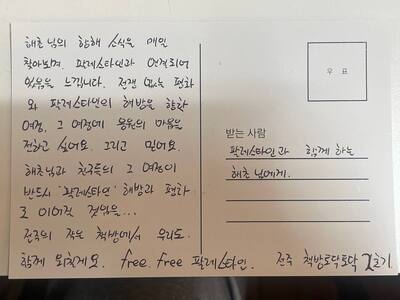 해초님의 항해 소식을 매일
찾아보며, 팔레스타인과 연결되어
있음을 느낍니다. 전쟁 없는 평화
와 팔레스타인의 해방을 향한
여정, 그 여정에 응원의 마음을
전하고 싶어요. 그리고 믿어요.
해초님과 친구들의 그 여정이
반드시 '팔레스타인' 해방과 평화
로 이어질 것임을...
전주의 작은 책방에서 우리도.
함께 외칠게요. free. free 팔레스타인.
우표
받는 사람
팔레스타인과 함께 하는
해초 님에게.
전주 책방토닥토닥